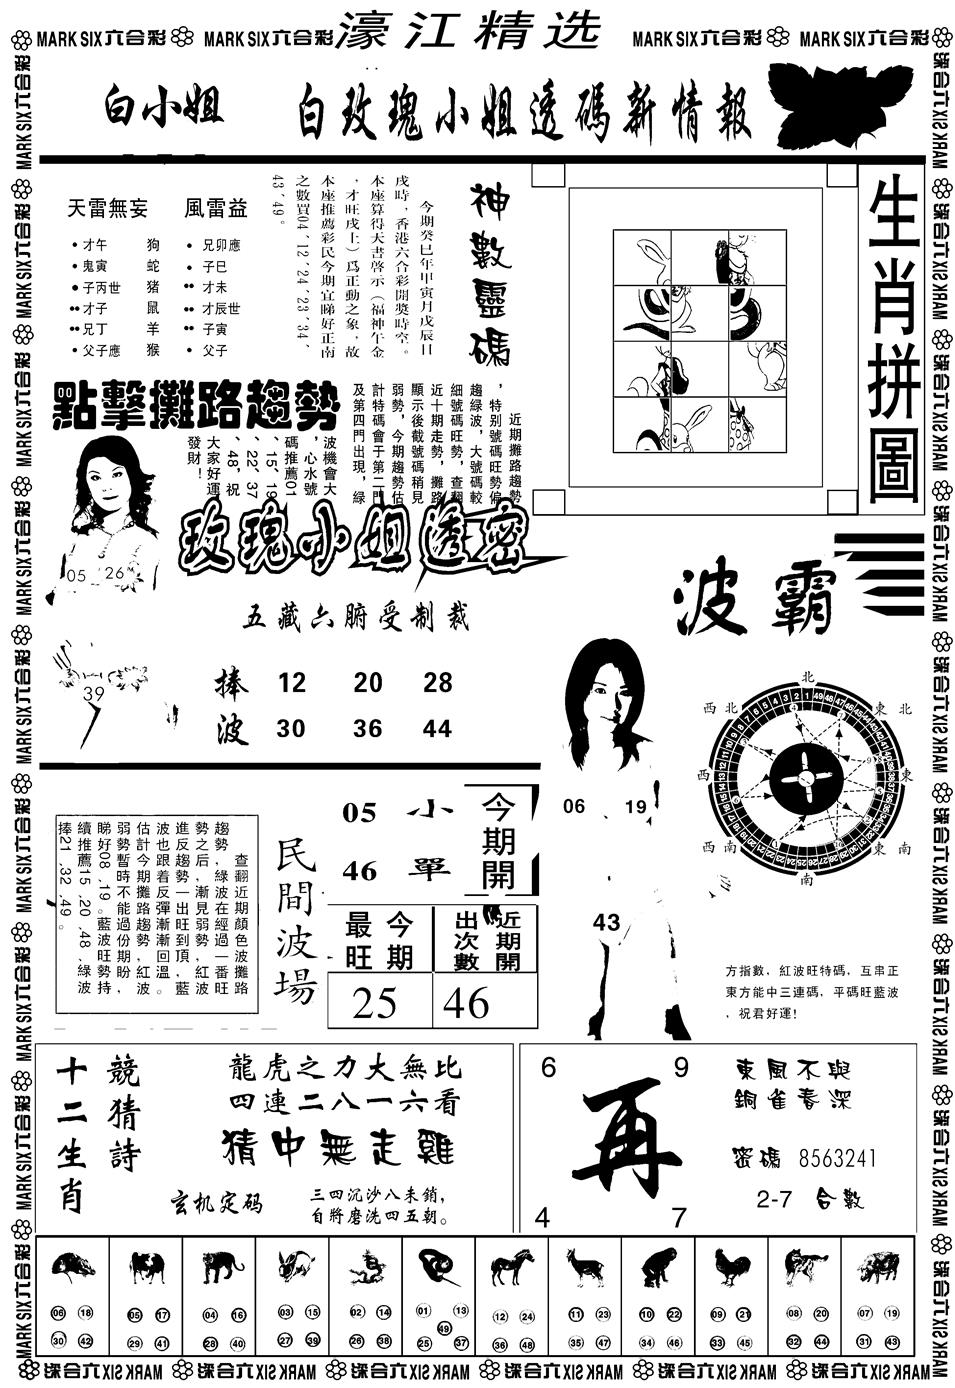 MARK SIX六合彩 MARK SIX六合彩 濠江精选 MARK SIX六合彩 MARK SIX六合彩
白小姐 白玫瑰小姐透碼新情報
天雷無妄 風雷益
才午 狗 兄卯應
鬼寅 蛇 子巳
子丙世 猪 才未
才子 鼠 才辰世
兄丁 羊 子寅
父子應 猴 父子
神數靈碼
今期癸巳年甲寅月戊辰日
戌時，香港六合彩開獎時空。
本座算得天書啓示（福神午金
，才旺戌上）爲正動之象，故
本座推薦彩民今期宜睇好正南
之數買04、12、24、23、34、
43、49。
生肖拼圖
點擊攤路趨勢
近期攤路趨勢
，特别號碼旺勢偏
趨緑波，大號碼較
細號碼旺勢，查翻
近十期走勢，攤路
顯示後截號碼稍見
弱勢，今期趨勢估
計特碼會于第二門
及第四門出現，緑
波機會大
，心水號
碼推薦01
、15、19
、22、37
、48，祝
大家好運
發財！
05 26
39
玫瑰小姐透密
五藏六腑受制裁
捧波
12 20 28
30 36 44
波霸
06 19
43
北
東北
東
東南
南
西南
西
西北
方指數，紅波旺特碼，互串正
東方能中三連碼，平碼旺藍波
，祝君好運！
查翻近期顔色波攤路
趨勢，緑波在經過一番旺
勢之后，漸見弱勢，紅波
進反趨勢一出旺到頂，藍
波也跟着反彈漸漸回溫。
估計今期攤路趨勢紅波
弱勢暫時不能過份期盼，
睇好08、19。藍波旺勢持
續推薦15、20、48，緑波
捧21、32、49。
民間波場
05 小
46 單
今期開
今期最旺
近期開出次數
25 46
十二生肖
競猜詩
龍虎之力大無比
四連二八一六看
猜中無走雞
玄机定码
三四沉沙八未銷，
自將磨洗四五朝。
6 9
再
4 7
東風不與
銅雀春深
密碼 8563241
2-7 合數
06 18 30 42
05 17 29 41
04 16 28 40
03 15 27 39
02 14 26 38
01 13 49 25 37
12 24 36 48
11 23 35 47
10 22 34 46
09 21 33 45
08 20 32 44
07 19 31 43
MARK SIX六合彩 MARK SIX六合彩 MARK SIX六合彩 MARK SIX六合彩 MARK SIX六合彩 MARK SIX六合彩